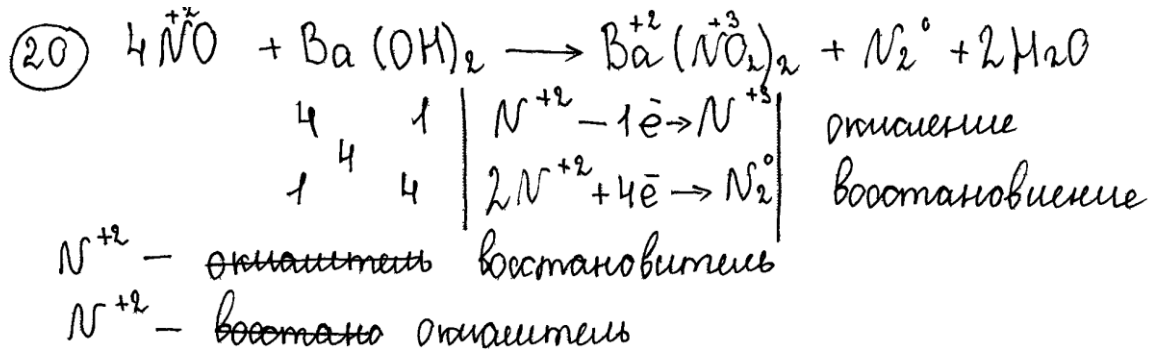 20 4N⁺²O + Ba(OH)₂ ⟶ Ba⁺²(N⁺³O₂)₂ + N₂⁰ + 2H₂O
4 1 | N⁺² − 1ē → N⁺³ | окисление
4
1 4 | 2N⁺² + 4ē → N₂⁰ | восстановление
N⁺² − окислитель восстановитель
N⁺² − восстано окислитель